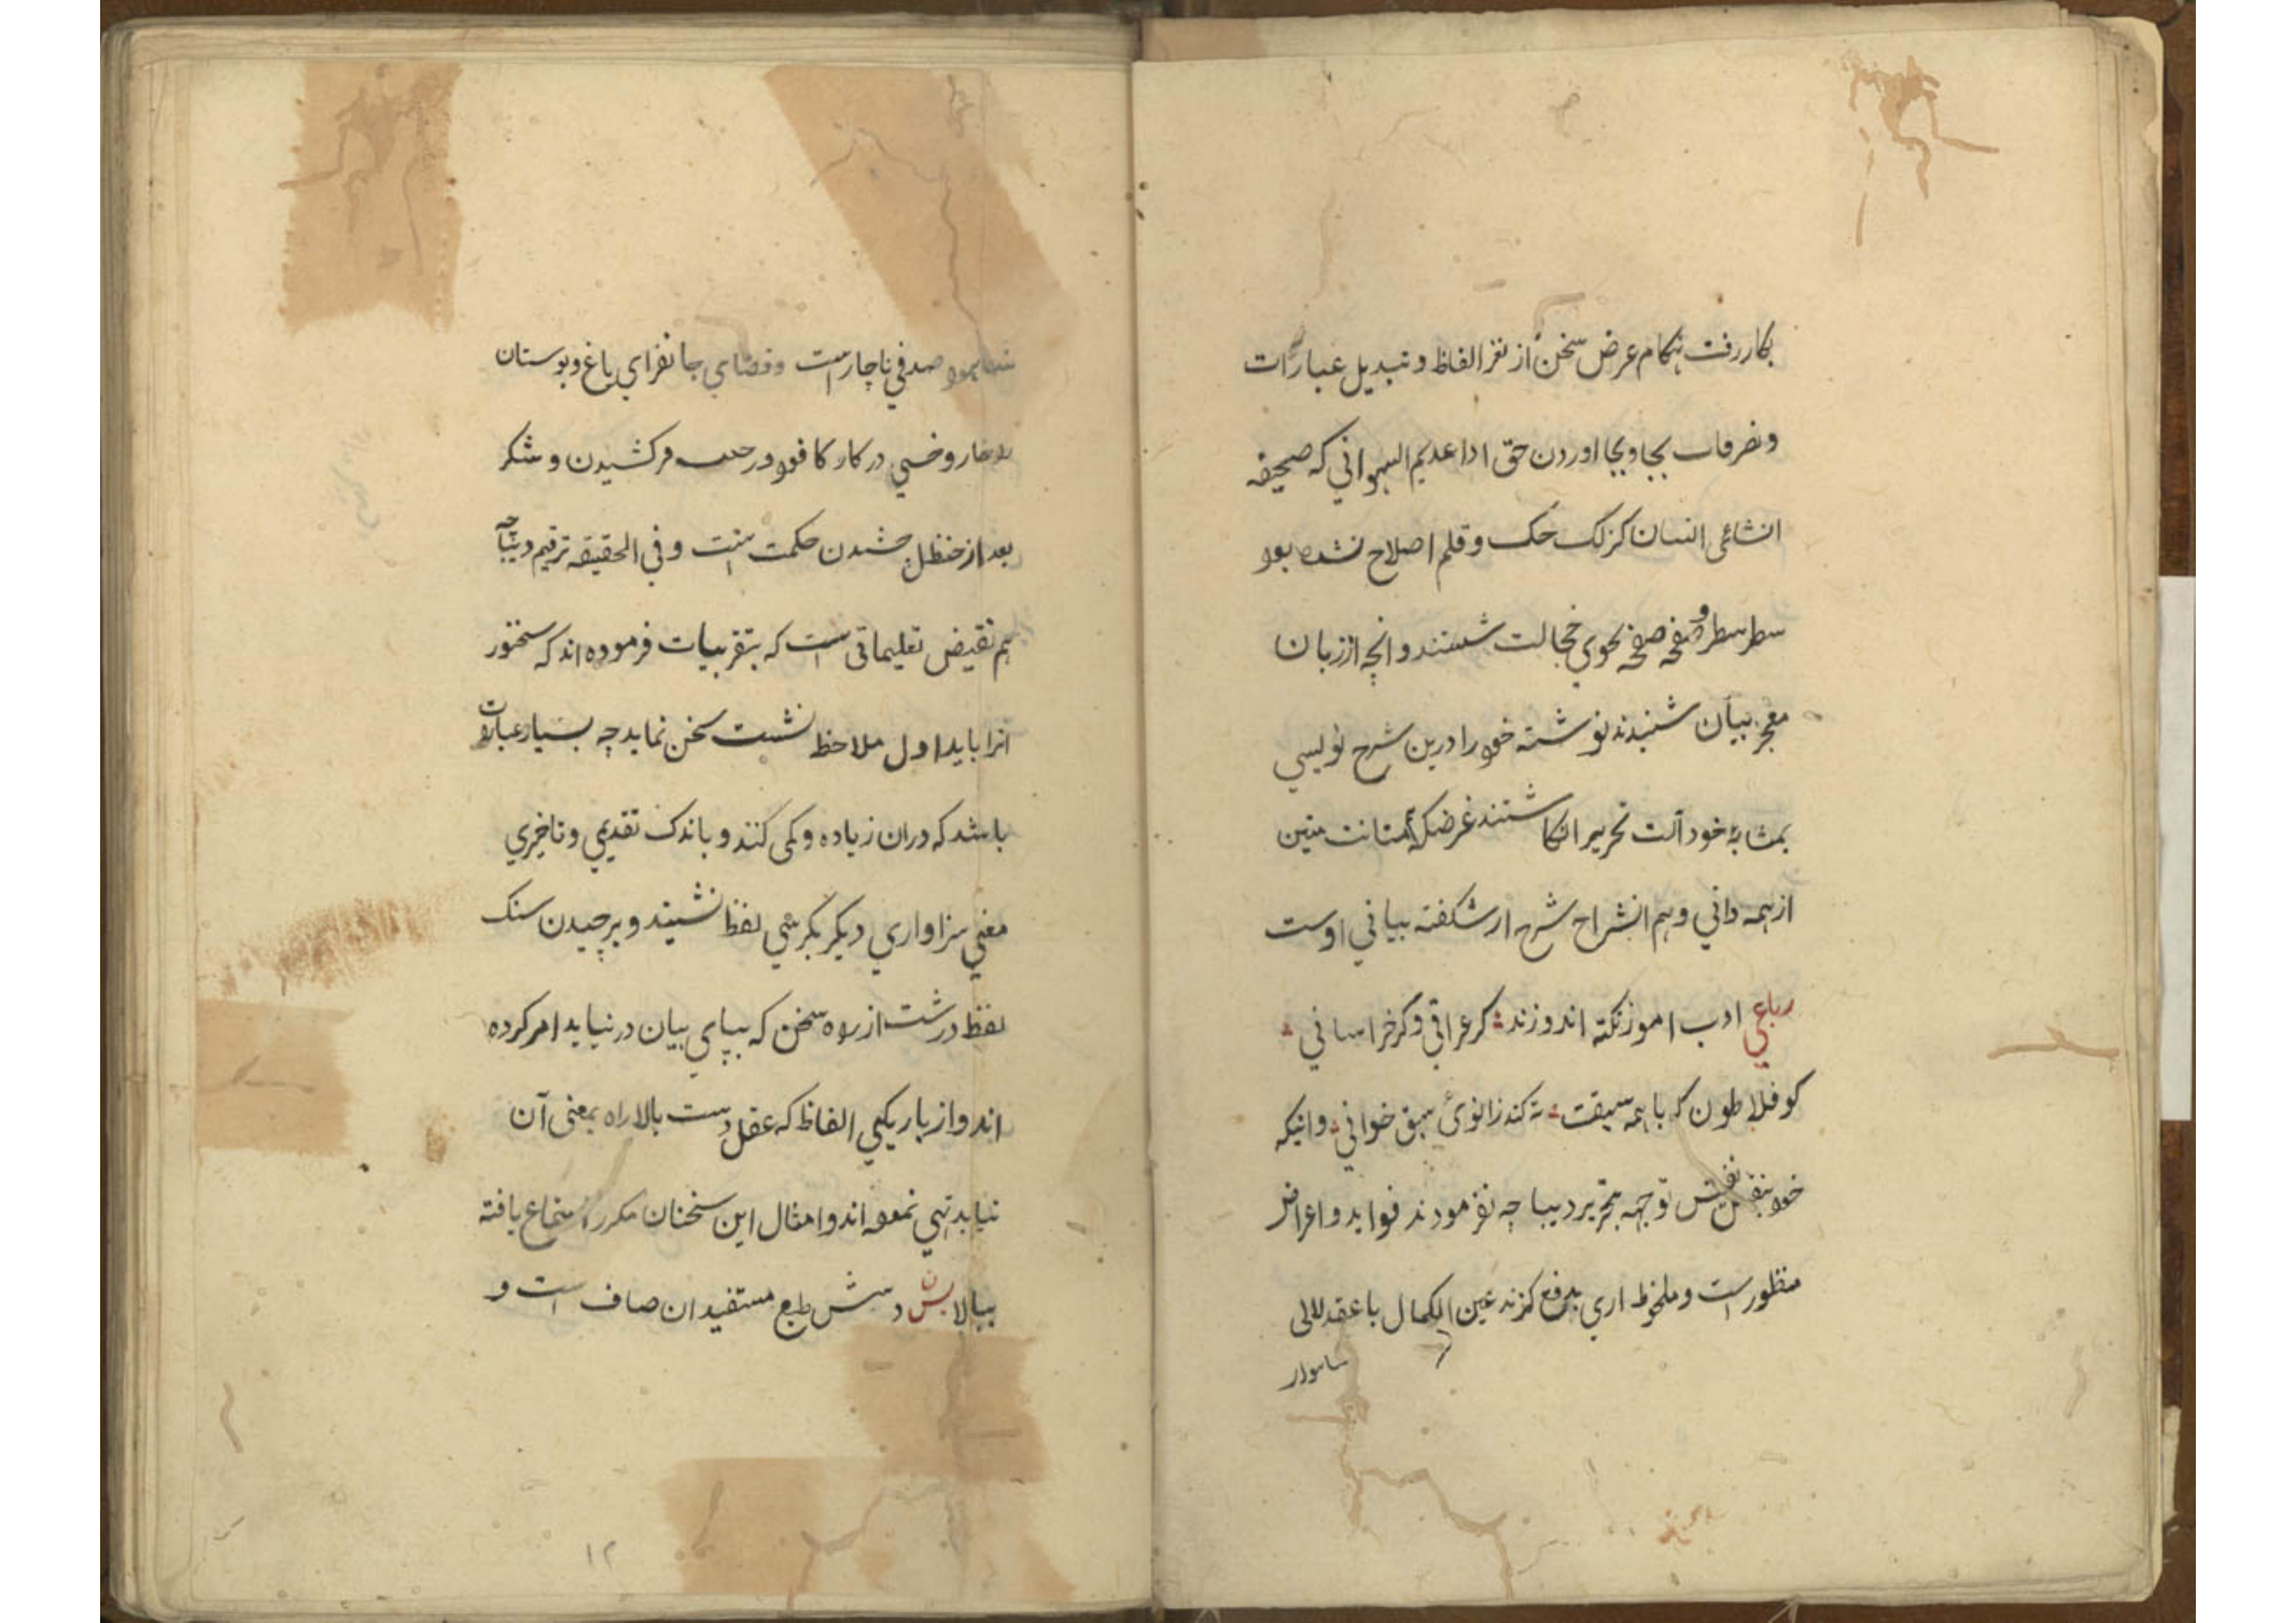 بکار رفت هنکام عرض سخن از نغز الفاظ و تبدیل عبارات
و تصرفات بجا و بیجا اوردن حق ادا عدیم السهوانی که صحیفه
انشائی انسان کزلک حک و قلم اصلاح نشده بود
سطر سطر و صفحه صفحه بخوی خجالت شستند و انچه اززبان
معجز بیان شنیدند نوشته خود را درین شرح نویسی
بمثابهٔ خود آلت تحریر انکاشتند غرضکه متانت متین
از همه دانی و هم انشراح شرح از شکفته بیانی اوست
رباعی ادب اموز نکته اندوزند کر عراقی و کر خراسانی
کو فلاطون که با همه سبقت ته کند زانوئ سبق خوانی و انیکه
خود بنفس نفیس توجه بتحریر دیباچه نفرمودند فواید و اعراض
منظور است و ملحوظ اری بدفع کزند عین الکمال با عقد للالی
صدفی ناچار است و فضای جانفزای باغ و بوستان
و خسی در کار کافور در کشیدن و شکر
بعد از حنظل چشیدن حکمت است و فی الحقیقه ترقیم دیباچه
هم نقیض تعلیماتی است که بتقریبات فرموده اند که سخنور
انرا باید اول ملاحظ نشست سخن نماید چه بسیار عبارت
باشد که دران زیاده و کمی کنند و باندک تقدیمی و تاخیری
معنی سزاواری دیکر بکرسی لفظ نشیند و برچیدن سنک
لفظ درشت از راه سخن که بپای بیان در نیاید امر کرده
اند و از باریکیی الفاظ که عقل دست بالا راه بمعنی آن
نیابد نهی نموده اند و امثال این سخنان مکرر استماع یافته
ببالا طبع مستفیدان صاف است و
۱۲